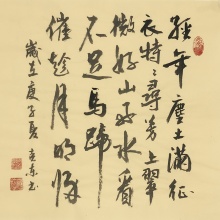 經年塵土滿征
衣特〻尋芳上翠
微好山好水看
不足馬蹄
催趁月明歸
歲在庚子夏